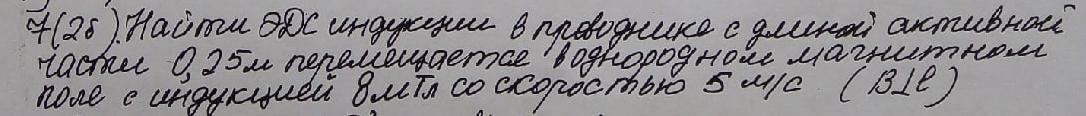 7(2б). Найти ЭДС индукции в проводнике с длиной активной
части 0,25м перемещается в однородном магнитном
поле с индукцией 8мТл со скоростью 5 м/с (B⊥l)